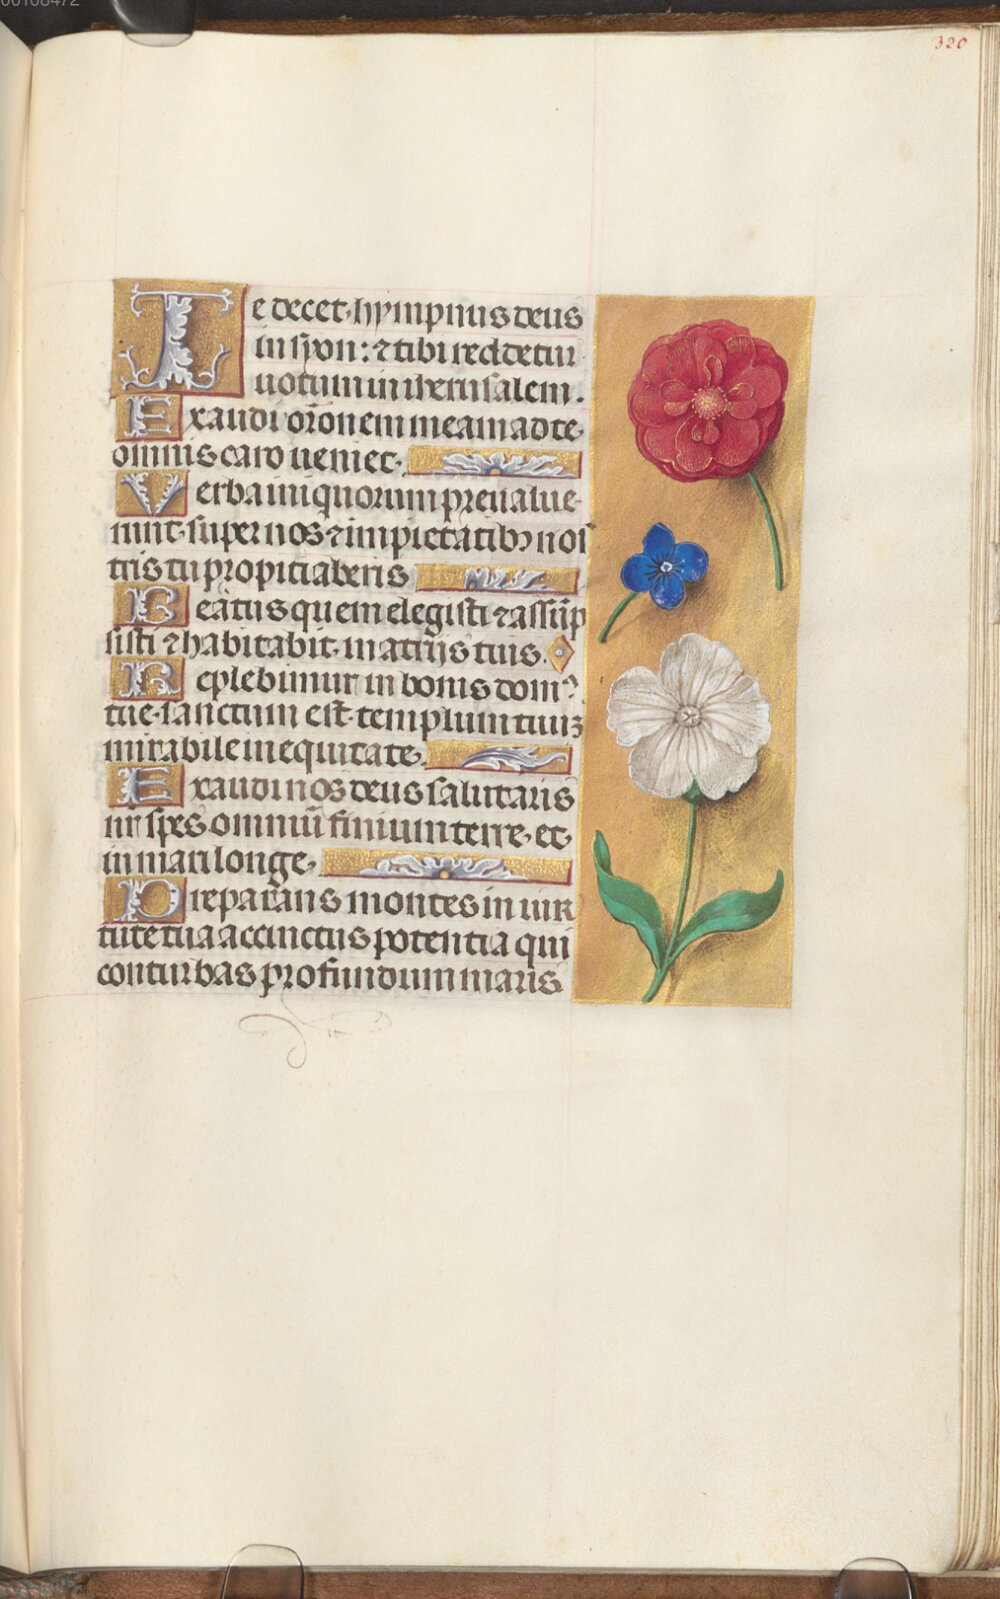 320
Te decet hympnus deus
in syon: ⁊ tibi reddetur
uotum in iherusalem.
Exaudi orōnem meam ad te
omnis caro ueniet.
Verba iniquorum preualue
runt super nos ⁊ impietatibꝫ nos
tris tu propitiaberis
Beatus quem elegisti ⁊ assūp
sisti ⁊ habitabit in atrijs tuis.
Replebimur in bonis dom⁹
tue sanctum est templum tuūꝫ
mirabile in equitate.
Exaudi nos deus salutaris
nr̄ spes omniū finium terre et
in mari longe.
Preparans montes in uir
tute tua accinctus potentia qui
conturbas profundum maris